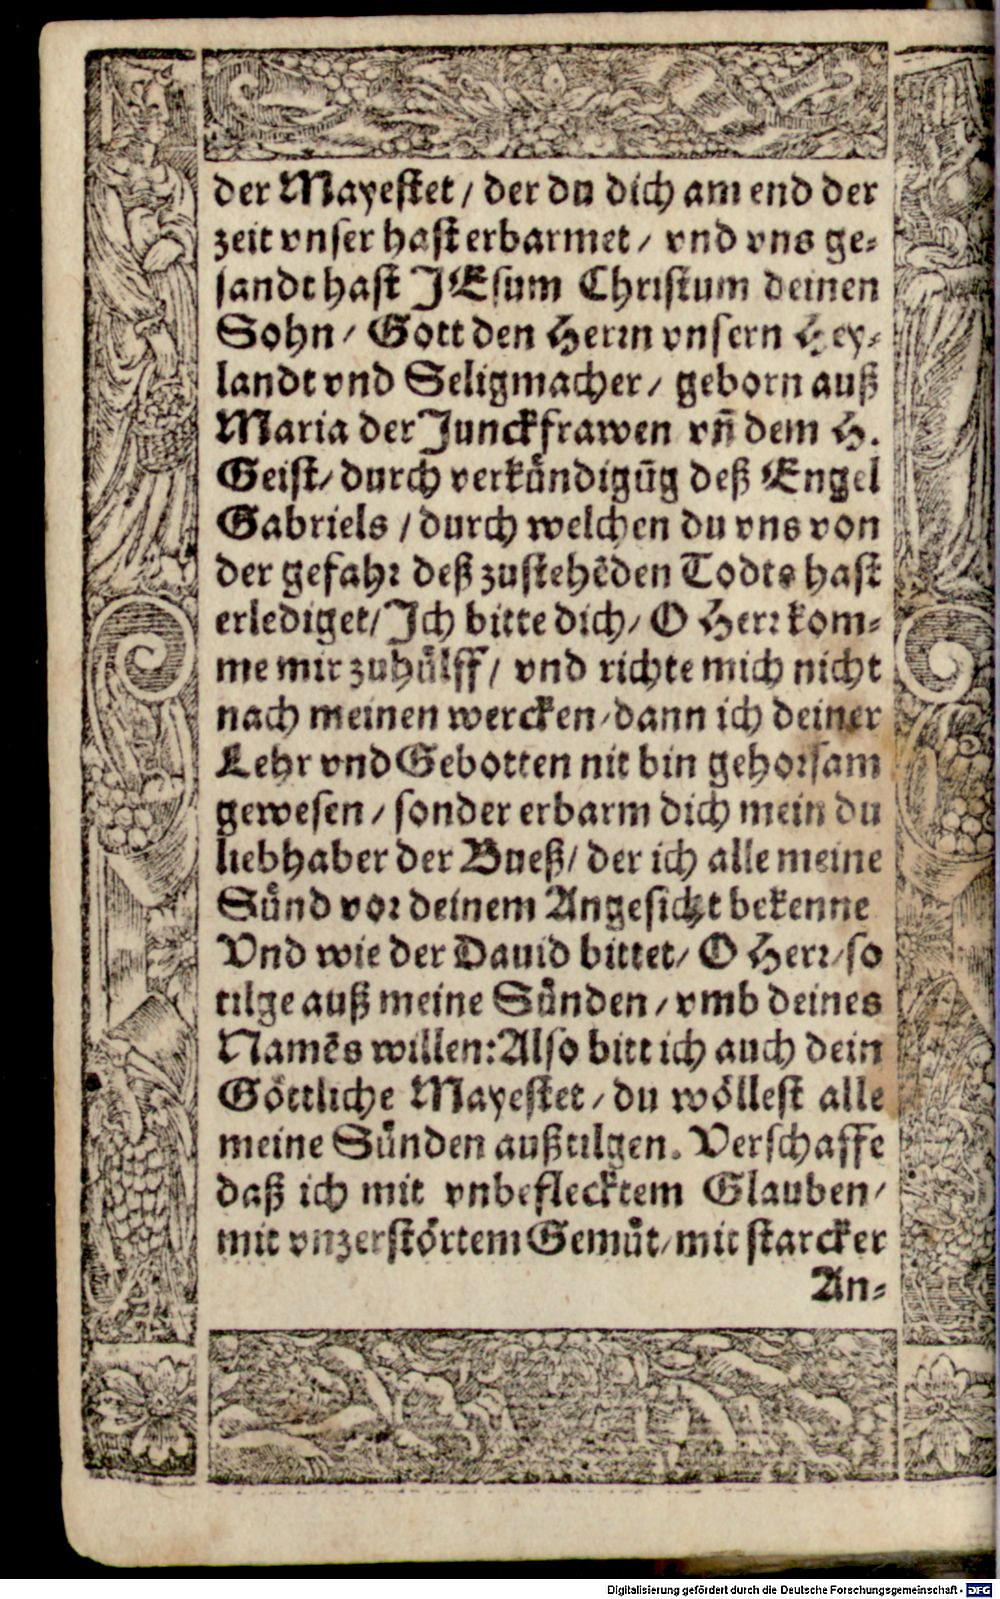 der Mayestet / der du dich am end der
zeit vnser hast erbarmet / vnd vns ge-
sandt hast JEsum Christum deinen
Sohn / Gott den Herrn vnsern Hey-
landt vnd Seligmacher / geborn auß
Maria der Junckfrawen vn̄ dem H.
Geist / durch verkuͤndigūg deß Engel
Gabriels / durch welchen du vns von
der gefahr deß zustehēden Todts hast
erlediget / Jch bitte dich / O Herr kom-
me mir zu huͤlff / vnd richte mich nicht
nach meinen wercken / dann ich deiner
Lehr vnd Gebotten nit bin gehorsam
gewesen / sonder erbarm dich mein du
liebhaber der Bueß / der ich alle meine
Suͤnd vor deinem Angesicht bekenne
Vnd wie der Dauid bittet / O Herr / so
tilge auß meine Suͤnden / vmb deines
Namēs willen: Also bitt ich auch dein
Goͤttliche Mayestet / du woͤllest alle
meine Suͤnden außtilgen. Verschaffe
daß ich mit vnbeflecktem Glauben /
mit vnzerstoͤrtem Gemuͤt / mit starcker
An-
Digitalisierung gefördert durch die Deutsche Forschungsgemeinschaft - DFG